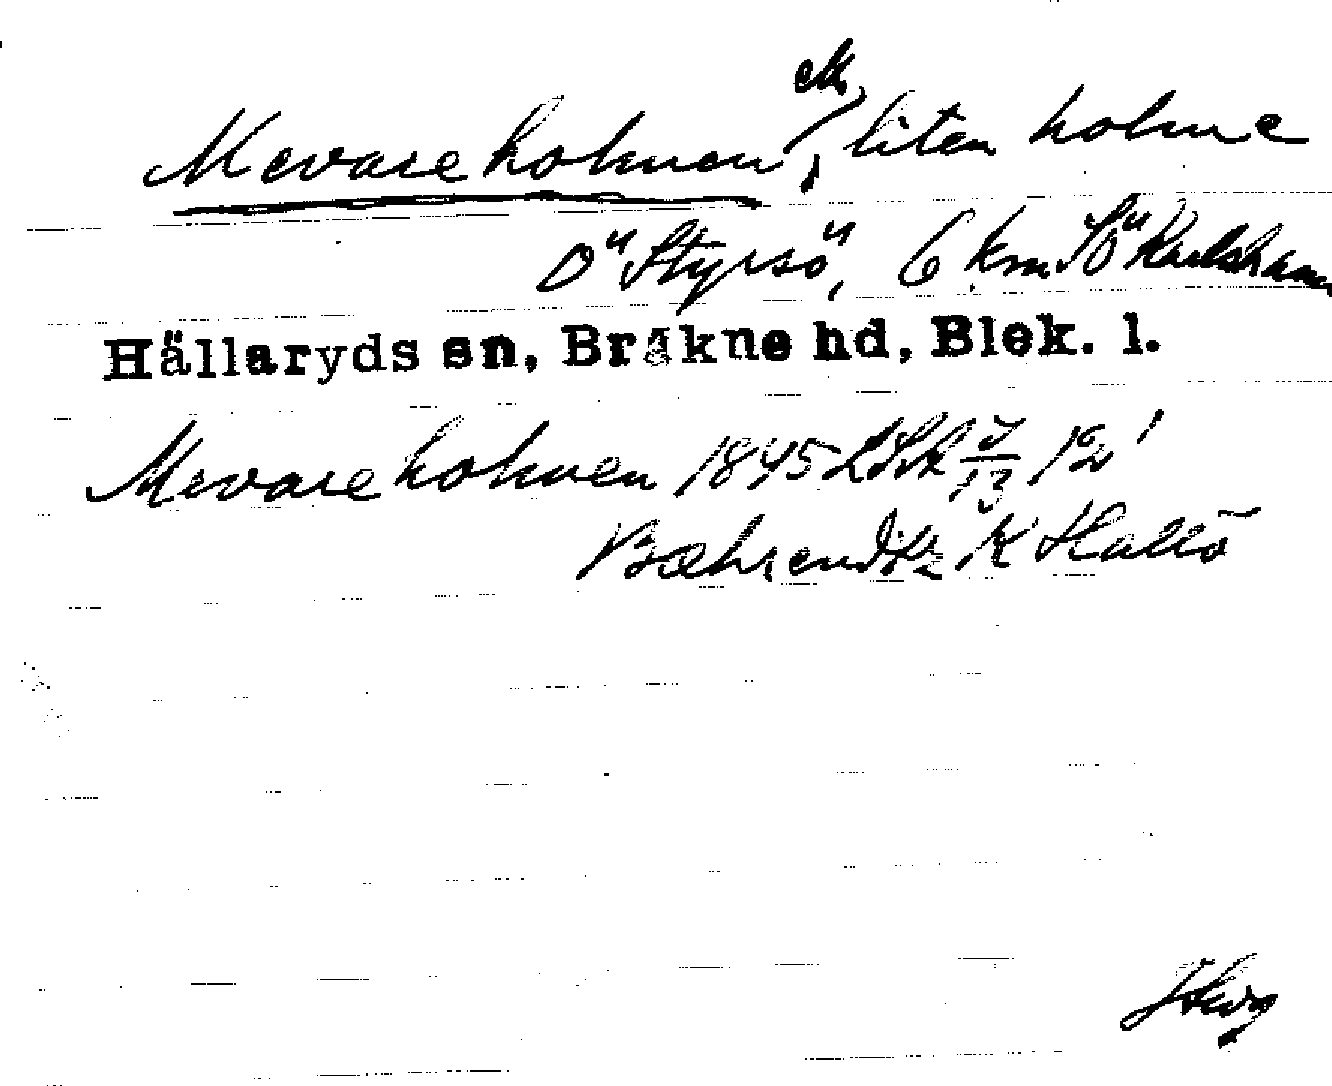 ek
Mevareholmen, liten holme
Ö "Styrsö", 6 km SÖ Karlshamn
Hällaryds sn, Bräkne hd, Blek. l.
Mevareholmen 1845 LSA J/13 12'
Bæhrendtz K Hallö